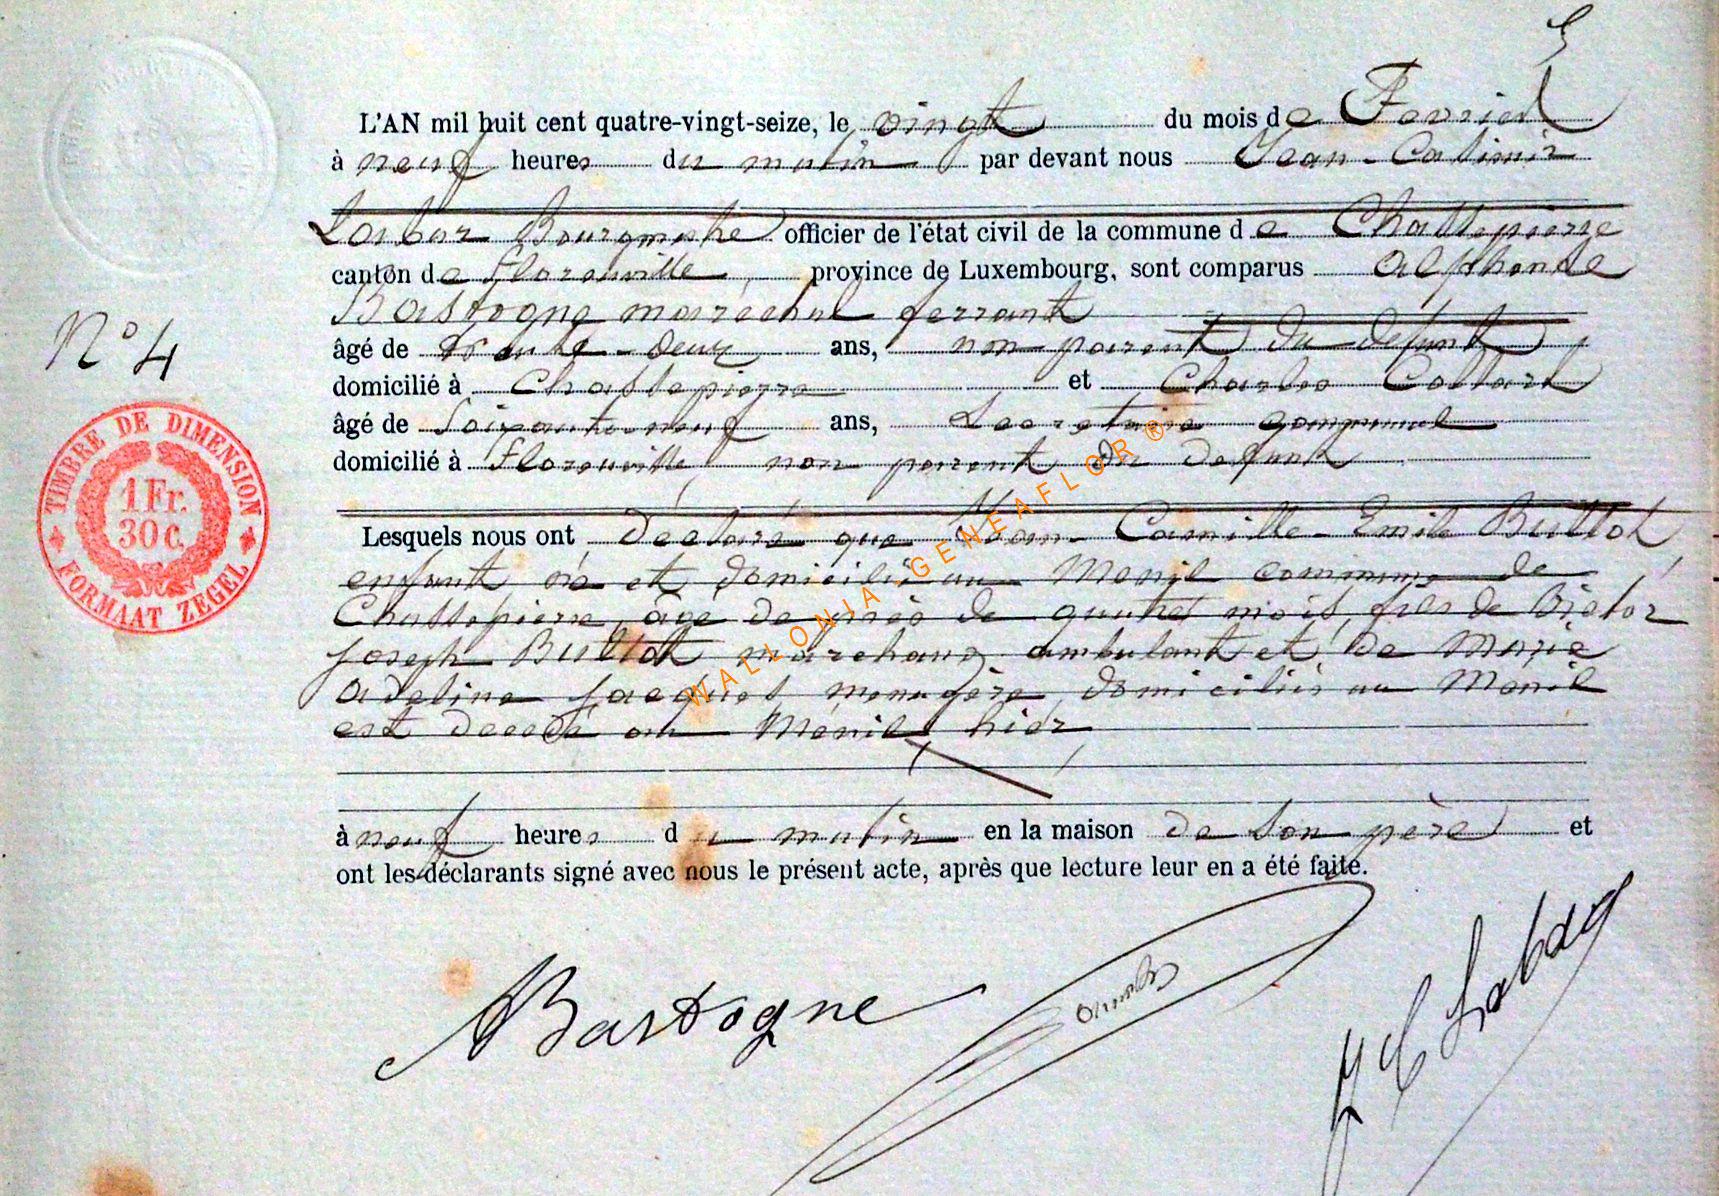 5
L'AN mil huit cent quatre-vingt-seize, le vingt du mois de Fevrier
à neuf heures du matin par devant nous Jean-Casimir
Labar Bourgmestre officier de l'état civil de la commune de Chassepierre
canton de Florenville, province de Luxembourg, sont comparus Alphonse
Bastogne maréchal ferrant
âgé de trente-deux ans, non parent du défunt
domicilié à Chassepierre et Charles Collard
âgé de Soixante-neuf ans, Secretaire communal
domicilié à Florenville, non parent du defunt
Lesquels nous ont déclaré que Jean-Camille-Emile Bultot
enfant né et domicilié au Menil commune de
Chassepierre, âgé de près de quatre mois, fils de Victor
Joseph Bultot marchand ambulant et de Marie
Adeline Jacques menagère domiciliés au Menil
est decedé au Ménil hier
à neuf heures du matin en la maison de son père et
ont les déclarants signé avec nous le présent acte, après que lecture leur en a été faite.
Bastogne
J C Labar
N° 4
TIMBRE DE DIMENSION
1 Fr.
30 c.
FORMAAT ZEGEL
WALLONIA GENEAFLOR ®